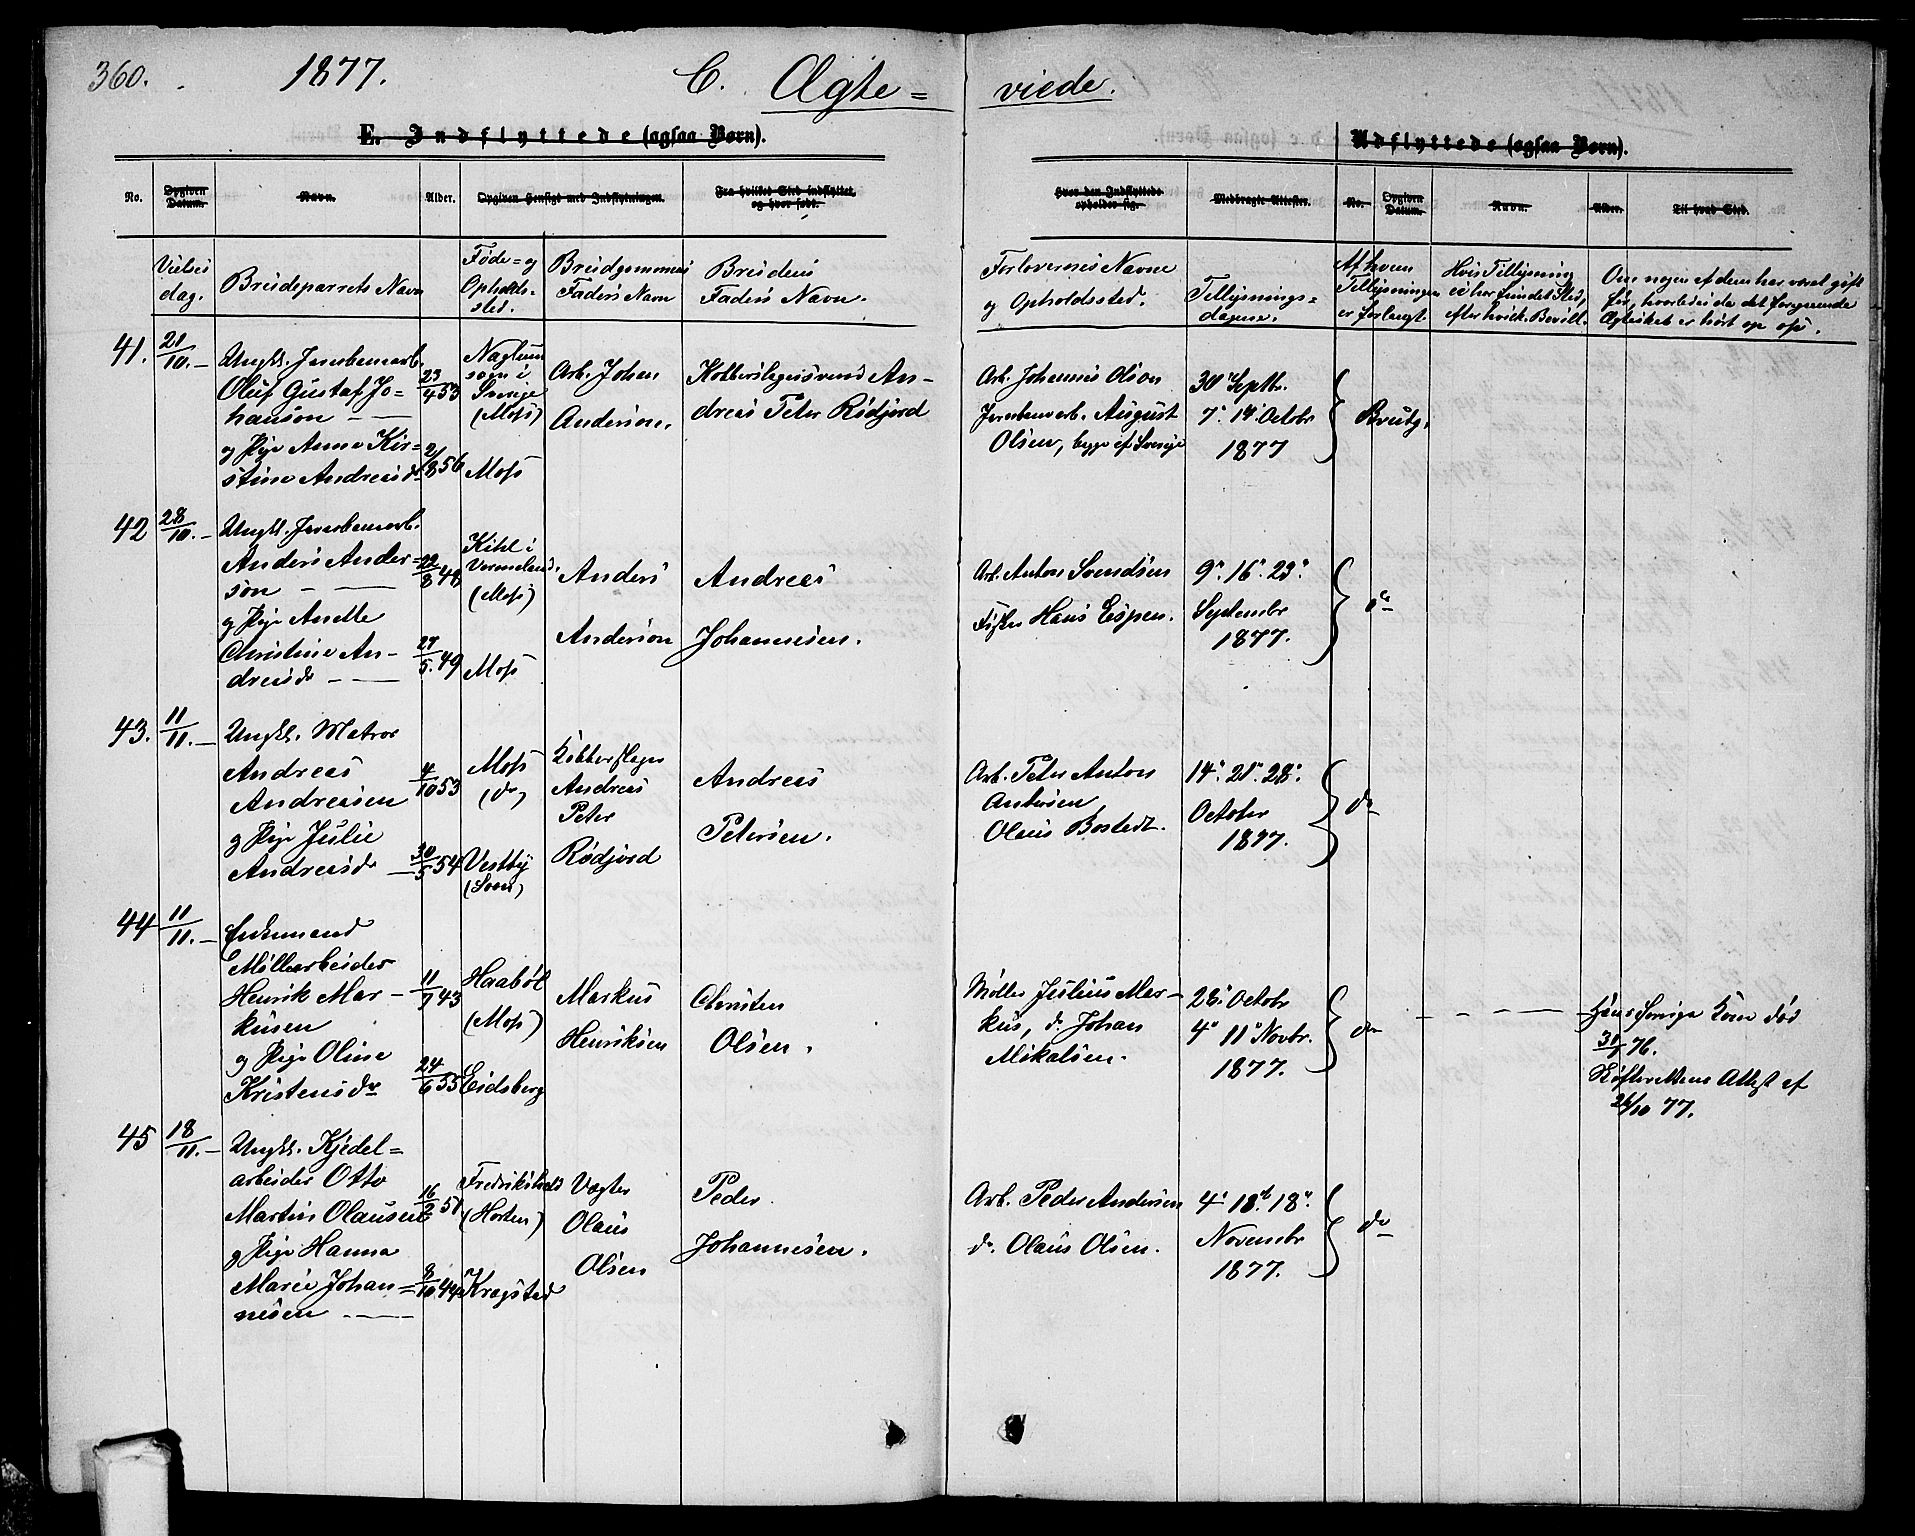 360. 1877. C. Ægte= viede.
E. Indflyttede (ogsaa Børn). Udflyttede (ogsaa Børn).
No. Opgiven Datum. Navn. Alder. Opgiven Hensigt med Indflytningen. Fra hvilket Sted indflyttet, og hvor født. Hvor den Indflyttede opholder sig. Medbragte Attester. No. Opgiven Datum. Navn. Alder. Til hvad Sted.
Vielses dag.
Brudeparrets Navn
Føde= og Opholds-sted.
Brudgommens Faders Navn
Brudens Faders Navn.
Forlovernes Navne og Opholdssted.
Tillysnings= dagene.
Af hvem Tillysningen er forlangt.
Hvis Tillysning ei har fundet Sted, efter hvick. Bevill.
Om nogen af dem har været gift før, hvorledes da det foregaaende Ægteskab er hørt op ofs.
41. 21/10. –
Ungk. Jernbanearb.
Oluf Gustaf Jo-
hanson –
og Pige Anne Kir=
stine Andreasdr
23/4 53
2/8 56
Naglum
sogn i
Sverige
(Moss)
Moss
Arb. Johan
Anderson.
Kobberslagersvend An-
dreas Peter Rødjord
Arb. Johannes Olson
Jernbanearb. August
Olsen, begge af Sverige
30 Septbr.
7. 14. Octobr
1877
Brudg.
42 28/10. –
Ungk. Jernbanearb.
Anders Ander=
son –
og Pige Anette
Christine An-
dreasdr –
22/8 48
27/5. 49
Kihl i
Vermeland.
(Moss)
Moss
Anders
Anderson
Andreas
Johannesen.
Arb. Anton Svendsen
Fisker Hans Espen.
9. 16. 23.
Septembr
1877.
do
43. 11/11. –
Ungk. Matros
Andreas
Andreasen
og Pige Julie
Andreasdr –
4/10 53
30/5 54
Moss
(do)
Vestby
(Soon)
Kobberslager
Andreas
Peter
Rødjord
Andreas
Petersen.
Arb. Peter Anton
Antonsen
Olaus Bostedt.
14. 21. 28.
October
1877.
do
44 11/11. –
Enkemand
Møllearbeider
Henrik Mar-
kusen
og Pige Oline
Kristensdr
11/7 43
24/6 55
Haabøl
(Moss)
Eidsberg
Markus
Henriksen
Christen
Olsen.
Møller Julius Mar-
kus, do Johan
Mikalsen.
28. Octobr
4. 11. Novbr.
1877.
do
Hans forrige Kone død
30/7 76.
Skifterettens Attest af
26/10 77.
45 18/11. –
Ungk. Kjedel=
arbeider Otto
Martin Olausen
og Pige Hanna
Marie Johan=
nesen –
16/2 51
8/10. 44
Fredrikshald
(Horten)
Kragstad
Vægter
Olaus
Olsen
Peder
Johannesen.
Arb. Peder Andersen
do. Olaus Olsen.
4. 18. 18.
Novembr
1877.
do